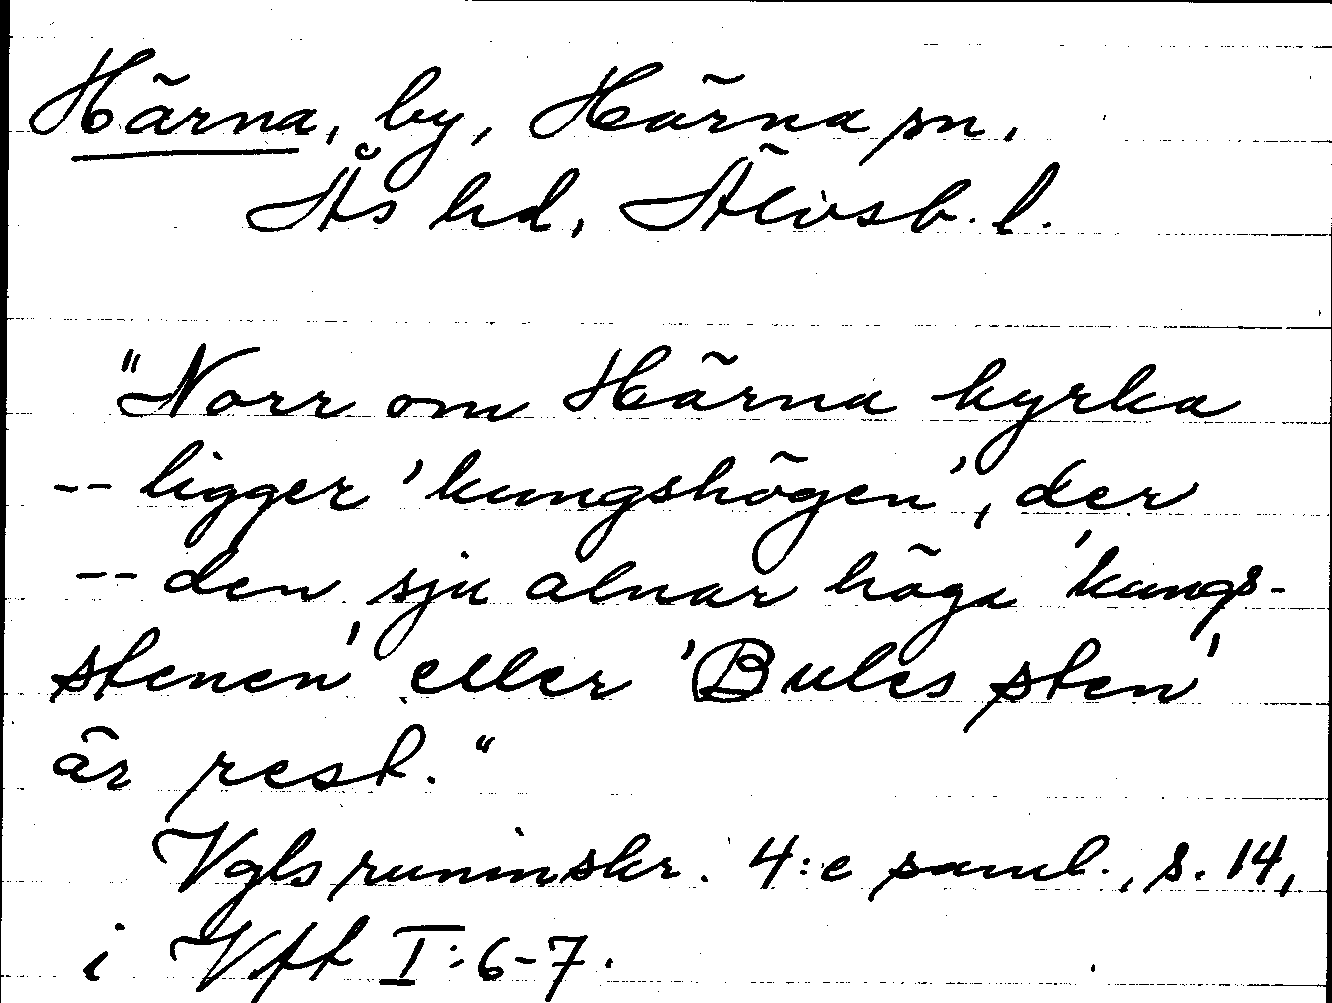 Härna, by, Härna sn,
Ås hd, Älvsb. l.
"Norr om Härna kyrka
-- ligger 'kungshögen', der
-- den sju alnar höga 'kungs-
stenen' eller 'Bules sten'
är rest."
Vgls runinskr. 4:e saml., s. 14,
i Vft I:6-7.